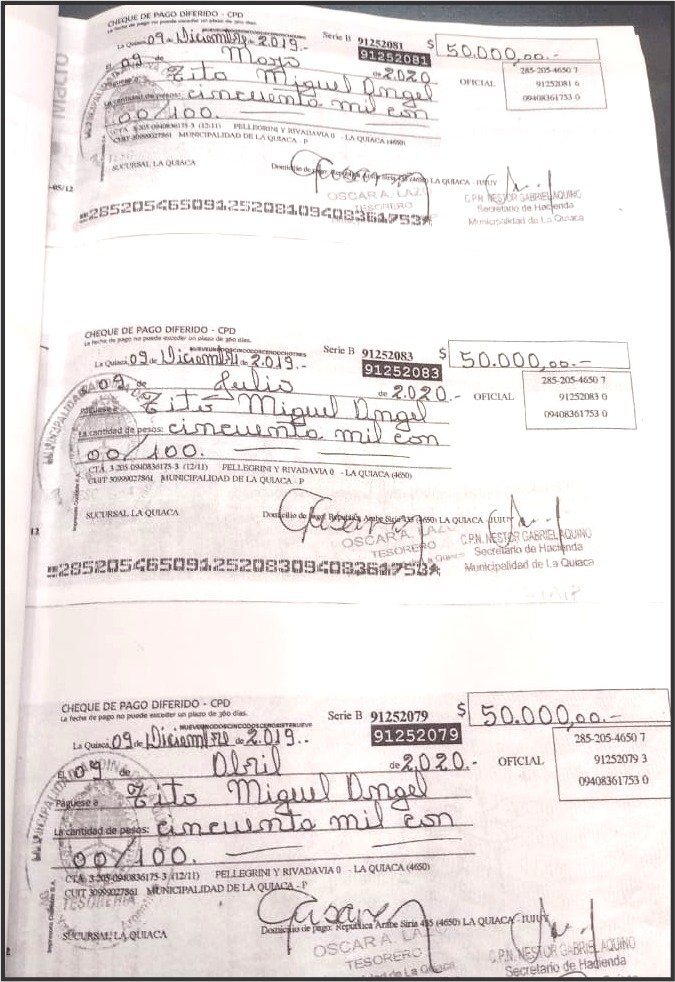 CHEQUE DE PAGO DIFERIDO - CPD
La fecha de pago no puede exceder un plazo de 360 días.
La Quiaca, 09 de Diciembre de 2.019.- Serie B 91252081 $ 50.000,00.-
91252081
El 09 de Mayo de 2.020 OFICIAL
285-205-4650 7
91252081 6
09408361753 0
Páguese a Tito Miguel Angel
La cantidad de pesos: cincuenta mil con
00/100.
CTA 3-205-0940836175-3 (12/11) PELLEGRINI Y RIVADAVIA 0 - LA QUIACA (4650)
CUIT 30999027861 MUNICIPALIDAD DE LA QUIACA - P
SUCURSAL LA QUIACA
Domicilio de pago: República Arabe Siria (4650) LA QUIACA - JUJUY
OSCAR A. LAZ
TESORERO
C.P.N. NESTOR GABRIEL AQUINO
Secretario de Hacienda
Municipalidad de La Quiaca
-05/12
28520546509125208109408361753
CHEQUE DE PAGO DIFERIDO - CPD
La fecha de pago no puede exceder un plazo de 360 días.
La Quiaca, 09 de Diciembre de 2.019.- Serie B 91252083 $ 50.000,00.-
91252083
El 09 de Julio de 2.020.- OFICIAL
285-205-4650 7
91252083 0
09408361753 0
Páguese a Tito Miguel Angel
La cantidad de pesos: cincuenta mil con
00/100.
CTA 3-205-0940836175-3 (12/11) PELLEGRINI Y RIVADAVIA 0 - LA QUIACA (4650)
CUIT 30999027861 MUNICIPALIDAD DE LA QUIACA - P
SUCURSAL LA QUIACA
Domicilio de pago: República Arabe Siria 435 (4650) LA QUIACA - JUJUY
OSCAR A. LAZ
TESORERO
C.P.N. NESTOR GABRIEL AQUINO
Secretario de Hacienda
Municipalidad de La Quiaca
12
28520546509125208309408361753
CHEQUE DE PAGO DIFERIDO - CPD
La fecha de pago no puede exceder un plazo de 360 días.
NUEVEUNODOSCINCODOSCEROSIETENUEVE
La Quiaca, 09 de Diciembre de 2.019.- Serie B 91252079 $ 50.000,00.-
91252079
El 09 de Abril de 2.020.- OFICIAL
285-205-4650 7
91252079 3
09408361753 0
Páguese a Tito Miguel Angel
La cantidad de pesos: cincuenta mil con
00/100.
CTA 3-205-0940836175-3 (12/11) PELLEGRINI Y RIVADAVIA 0 - LA QUIACA (4650)
CUIT 30999027861 MUNICIPALIDAD DE LA QUIACA - P
TESORERIA
SUCURSAL LA QUIACA
Domicilio de pago: República Arabe Siria 435 (4650) LA QUIACA - JUJUY
OSCAR A. LA
C.P.N. NESTOR GABRIEL AQUINO
Secretario de Hacienda